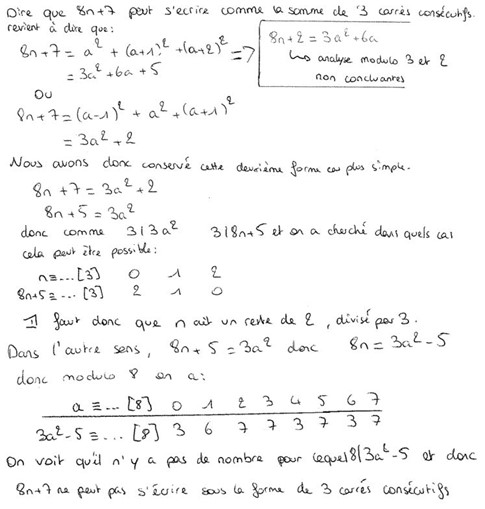 Dire que 8n+7 peut s'ecrire comme la somme de 3 carrés consécutifs.
revient à dire que:
8n+7 = a² + (a+1)² + (a+2)² => 8n+2 = 3a²+6a
= 3a²+6a+5 ↳ analyse modulo 3 et 2
non concluantes
OU
8n+7 = (a-1)² + a² + (a+1)²
= 3a²+2
Nous avons donc conservé cette deuxième forme car plus simple.
8n+7 = 3a²+2
8n+5 = 3a²
donc comme 3|3a² 3|8n+5 et on a cherché dans quels cas
cela peut être possible:
n≡...[3] 0 1 2
8n+5≡...[3] 2 1 0
Il faut donc que n ait un reste de 2, divisé par 3.
Dans l'autre sens, 8n+5=3a² donc 8n=3a²-5
donc modulo 8 on a:
a ≡... [8] 0 1 2 3 4 5 6 7
3a²-5 ≡... [8] 3 6 7 7 3 7 3 7
On voit qu'il n'y a pas de nombre pour lequel 8|3a²-5 et donc
8n+7 ne peut pas s'écrire sous la forme de 3 carrés consécutifs